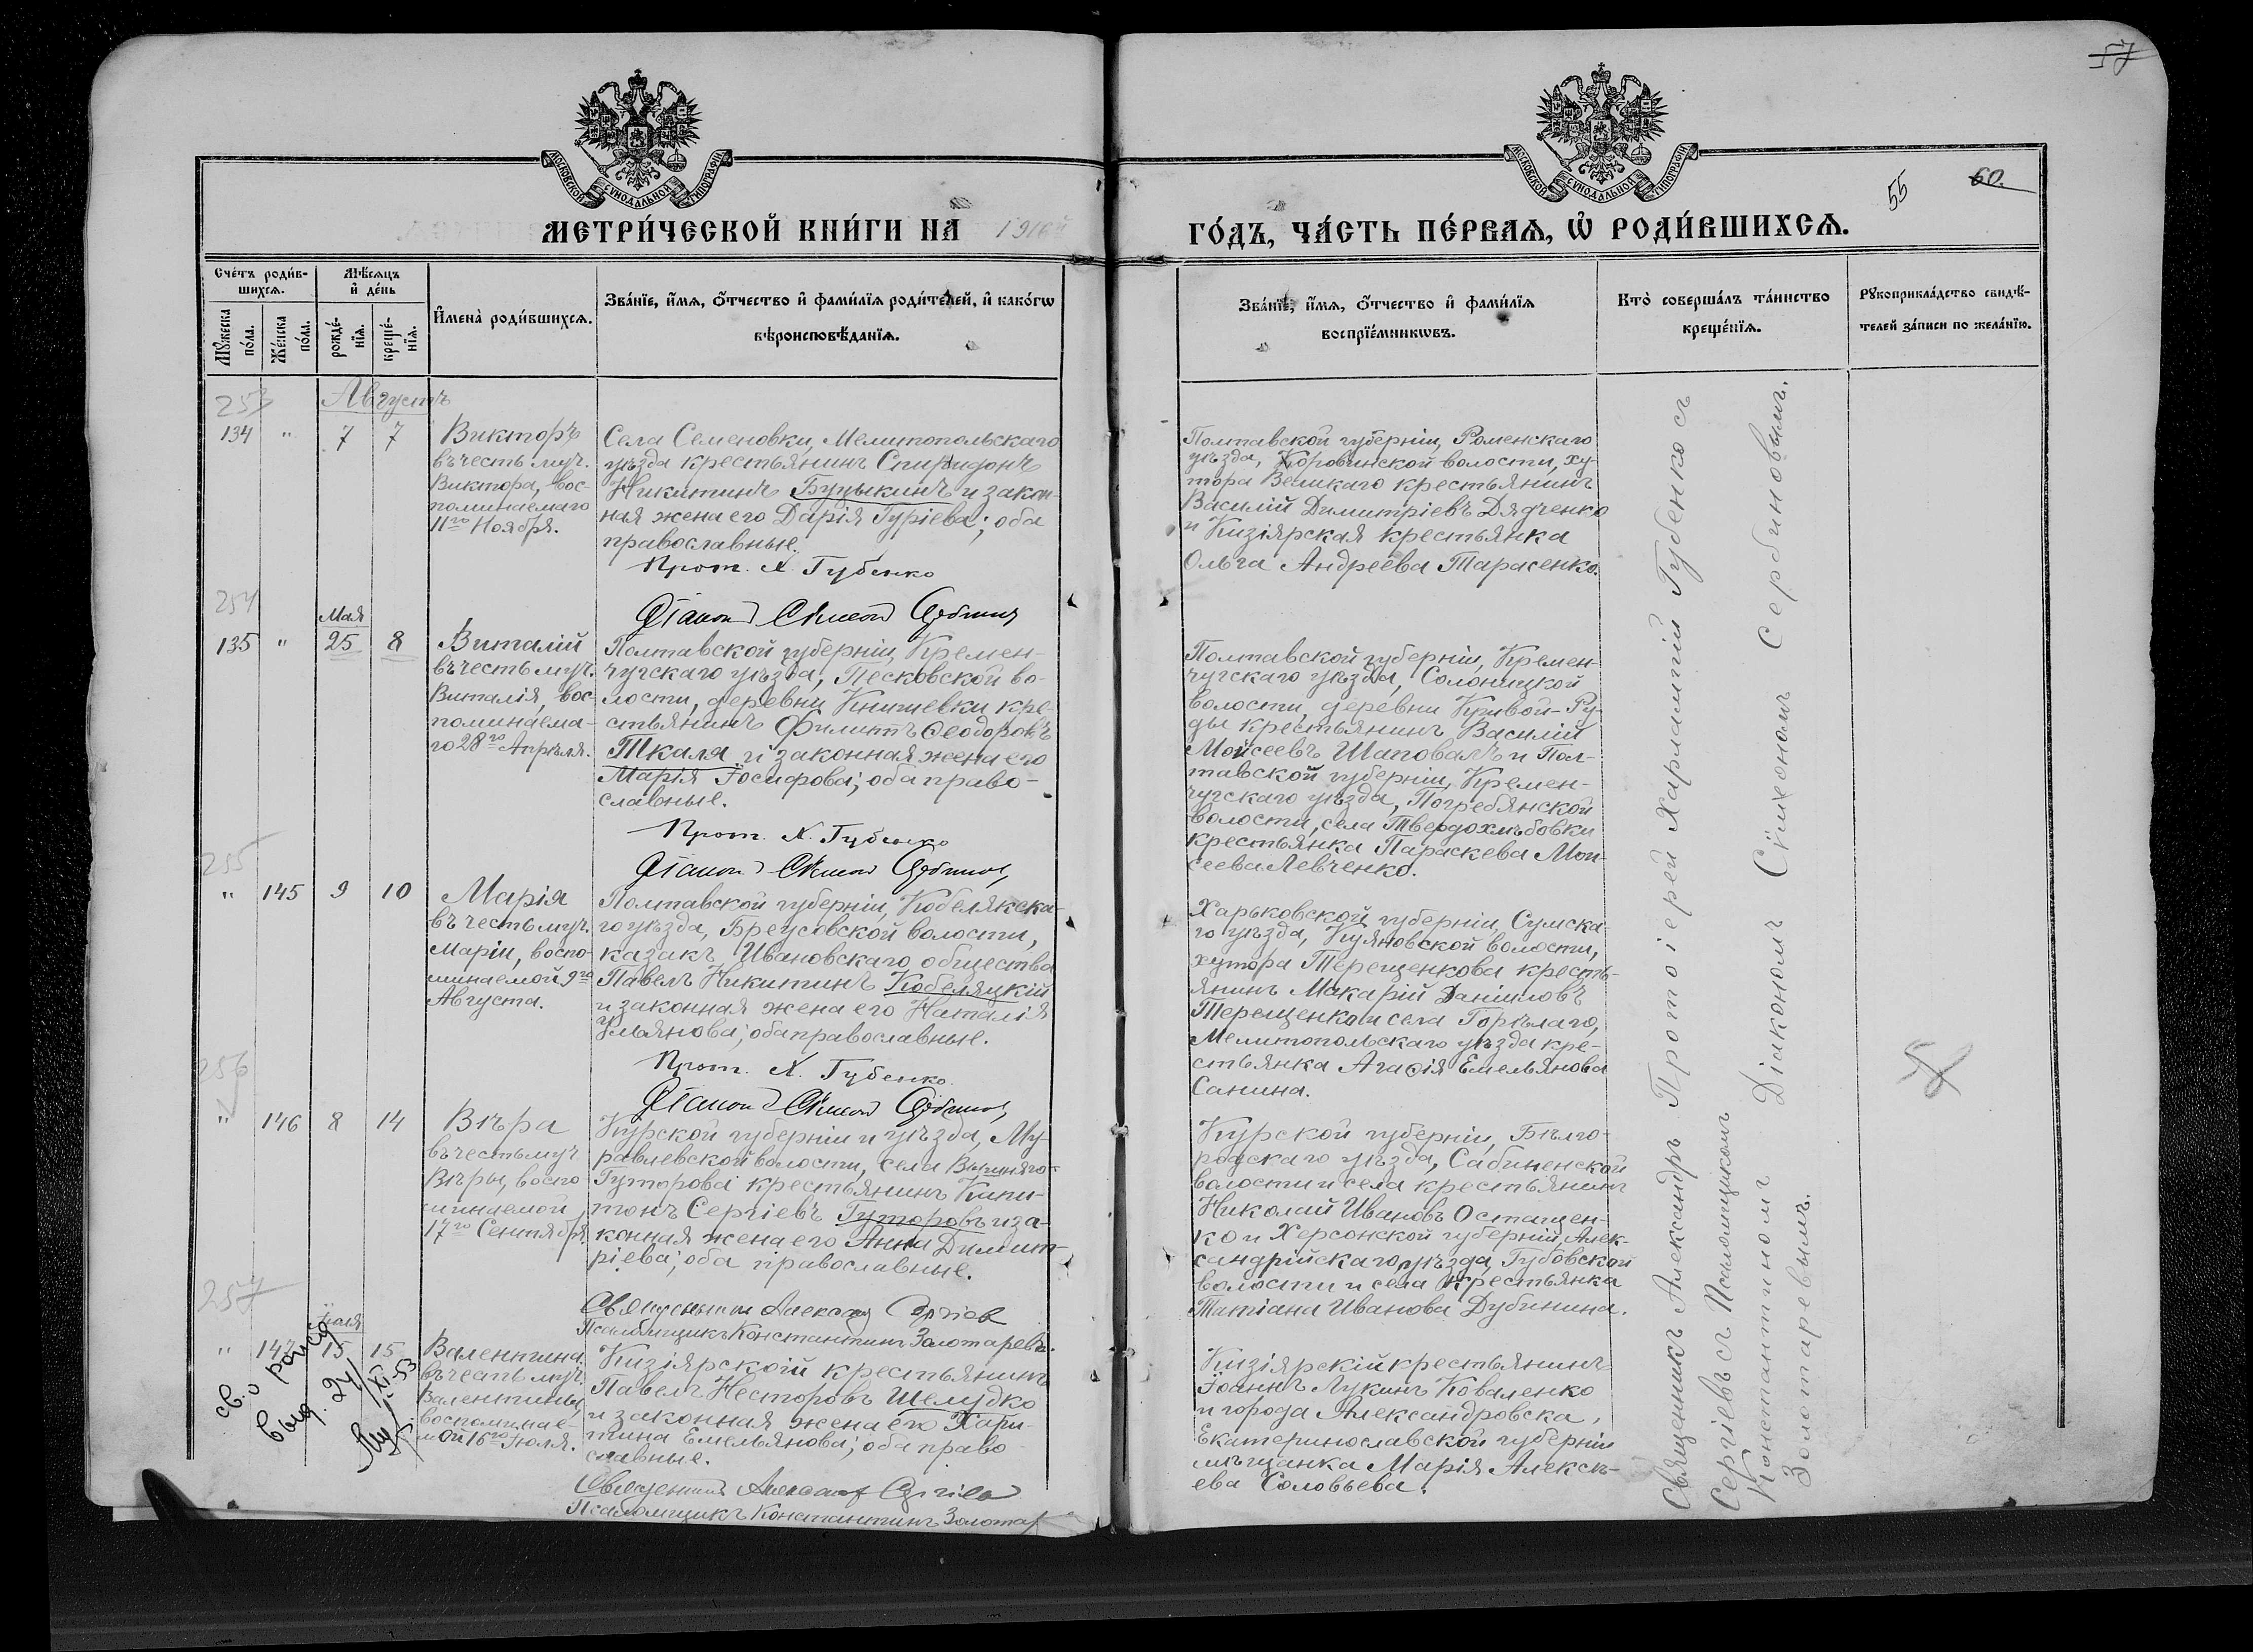 57
55
60.
МОСКОВСКОЙ СѴНОДАЛЬНОЙ ТИПОГРАФІИ
МОСКОВСКОЙ СѴНОДАЛЬНОЙ ТИПОГРАФІИ
МЕТРИ́ЧЕСКОЙ КНИ́ГИ НА 1916й
ГО́ДЪ, ЧА́СТЬ ПЕ́РВАѦ, Ѿ РОДИ́ВШИХСѦ.
Сче́тъ роди́в-
шихсѧ.
Мꙋ́жеска
по́ла.
Же́нска
по́ла.
Мѣ́сѧцъ
и҆ де́нь
рожде́-
нїѧ.
креще́-
нїѧ.
И҆мена̀ роди́вшихсѧ.
Зва́нїе, и҆́мѧ, ѻ҆́тчество и҆ фами́лїѧ роди́телей, и҆ како́гѡ
вѣроисповѣ́данїѧ.
Зва́нїе, и҆́мѧ, ѻ҆́тчество и҆ фами́лїѧ
воспрїе́мникѡвъ.
Кто̀ соверша́лъ та́инство
креще́нїѧ.
Рꙋкоприкла́дство свидѣ́-
телей за́писи по жела́нїю.
253
Августъ
134 " 7 7
Викторъ
въ честь муч.
Виктора, вос-
поминаемаго
11го Ноября.
Села Семеновки, Мелитопольскаго
уѣзда крестьянинъ Спиридонъ
Никитинъ Буцыкинъ и закон-
ная жена его Дарія Гуріева; оба
православные.
Прот. Х. Губенко
Діаконъ Сѵмеонъ Сербиновъ
Полтавской губерніи, Роменскаго
уѣзда, Коровинской волости, ху-
тора Великаго крестьянинъ
Василій Димитріевъ Дядченко
и Кизіярская крестьянка
Ольга Андреева Тарасенко.
254
Мая
135 " 25 8
Виталій
въ честь муч.
Виталія, вос-
поминаема-
го 28го Апрѣля.
Полтавской губерніи, Кремен-
чугскаго уѣзда, Песковской во-
лости, деревни Книшевки кре-
стьянинъ Филиппъ Ѳеодоровъ
Ткаля и законная жена его
Марія Іосифова; оба право-
славные.
Прот. Х. Губенко
Діаконъ Сѵмеонъ Сербиновъ
Полтавской губерніи, Кремен-
чугскаго уѣзда, Солоницкой
волости, деревни Кривой-Ру-
ды крестьянинъ Василій
Моисеевъ Шаповалъ и Пол-
тавской губерніи, Кремен-
чугскаго уѣзда, Погребянской
волости, села Твердохлѣбовки
крестьянка Параскева Мои-
сеева Левченко.
255
" 145 9 10
Марія
въ честь муч.
Маріи, воспо-
минаемой 9го
Августа.
Полтавской губерніи, Кобелякска-
го уѣзда, Бреусовской волости,
казакъ Ивановскаго общества
Павелъ Никитинъ Кобеляцкій
и законная жена его Наталія
Ульянова; оба православные.
Прот. Х. Губенко.
Діаконъ Сѵмеонъ Сербиновъ
Харьковской губерніи, Сумска-
го уѣзда, Куяновской волости,
хутора Терещенкова кресть-
янинъ Макарій Даніиловъ
Терещенко и села Горѣлаго,
Мелитопольскаго уѣзда кре-
стьянка Агаѳія Емельянова
Санина.
256
" 146 8 14
Вѣра
въ честь муч
Вѣры, воспо-
минаемой
17го Сентября
Курской губерніи и уѣзда, Му-
равлевской волости, села Вышняго-
Гуторова крестьянинъ Капи-
тонъ Сергіевъ Гуторовъ и за-
конная жена его Анна Димит-
ріева; оба православные.
Священникъ Александръ Сергіевъ
Псаломщикъ Константинъ Золотаревъ.
Курской губерніи, Бѣлго-
родскаго уѣзда, Сабыненской
волости и села крестьянинъ
Николай Ивановъ Осташен-
ко и Херсонской губерніи, Алек-
сандрійскаго уѣзда, Губовской
волости и села крестьянка
Татіана Иванова Дубинина.
257
Іюля
" 147 15 15
Валентина
въ честь муч.
Валентины
воспоминае-
мой 16го Іюля.
Кизіярскоій крестьянинъ
Павелъ Несторовъ Шелудко
и законная жена его Хари-
тина Емельянова; оба право-
славные.
Священникъ Александръ Сергіевъ
Псаломщикъ Константинъ Золотар
Кизіярскій крестьянинъ
Іоаннъ Лукинъ Коваленко
и города Александровска,
Екатеринославской губерніи
мѣщанка Марія Алексѣ-
ева Соловьева.
св. о рожд
выд. 24/XI-53
Священникъ Александръ Протоіерей Харлампій Губенко съ
Сергіевъ съ Псаломщикомъ
Діакономъ Сѵмеономъ Сербиновымъ.
Константиномъ
Золотаревымъ.